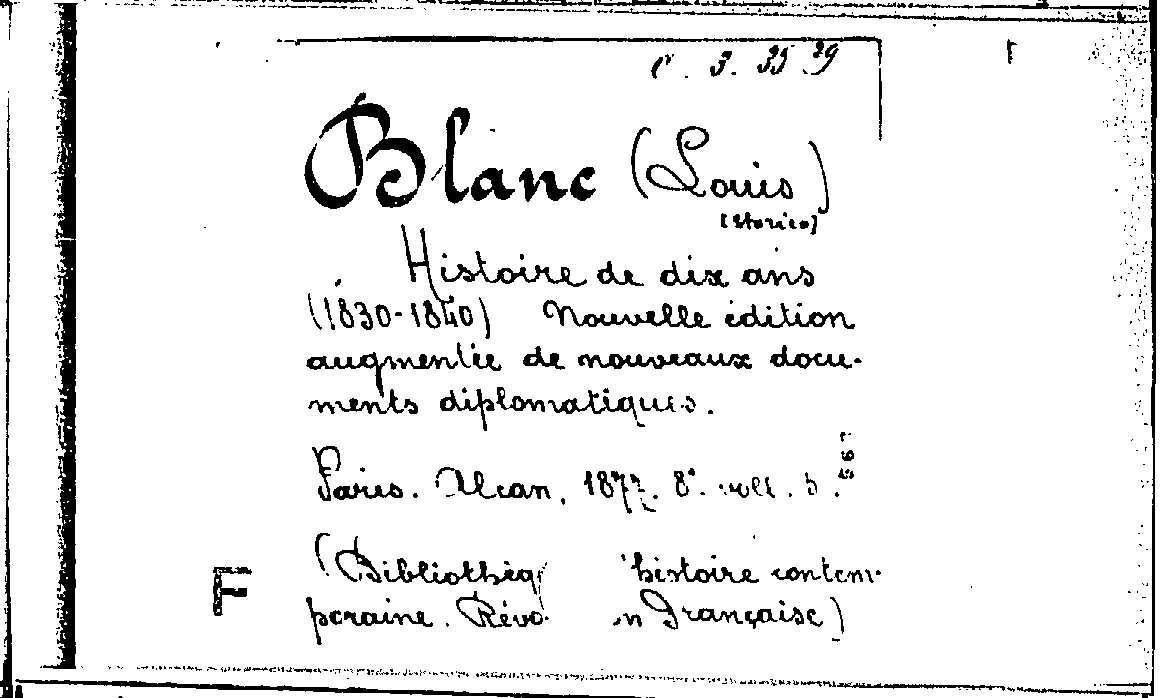 C. 3. 35 39
Blanc (Louis)
[storico]
Histoire de dix ans
(1830-1840) Nouvelle édition
augmentée de nouveaux docu-
ments diplomatiques.
Paris. Alcan, 1877. 8°. voll. 5.
(Bibliothèq histoire contem-
poraine. Révo n Française)
F